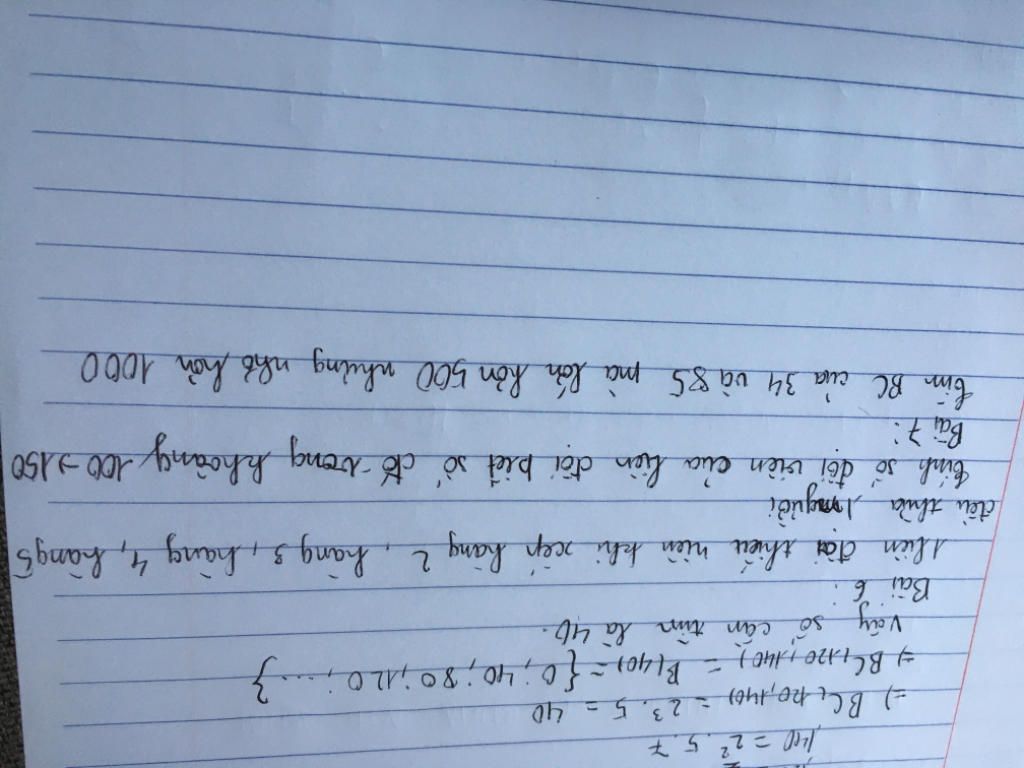 140 = 2² . 5 . 7
=) BC(120,140) = 2³ . 5 = 40
=) BC(120,140) = B(40) = { 0 ; 40 ; 80 ; 120 ; .... }
Vây số cần tìm là 40.
Bài 6 :
1 liên đôi thiếu niên khi xếp hàng 2 , hàng 3, hàng 4, hàng 5
đều thừa 1 người
tính số đội viên của liên đội biết số đó trong khoảng 100 → 150
Bài 7 :
tìm BC của 34 và 85 mà lớn hơn 500 nhưng nhỏ hơn 1000